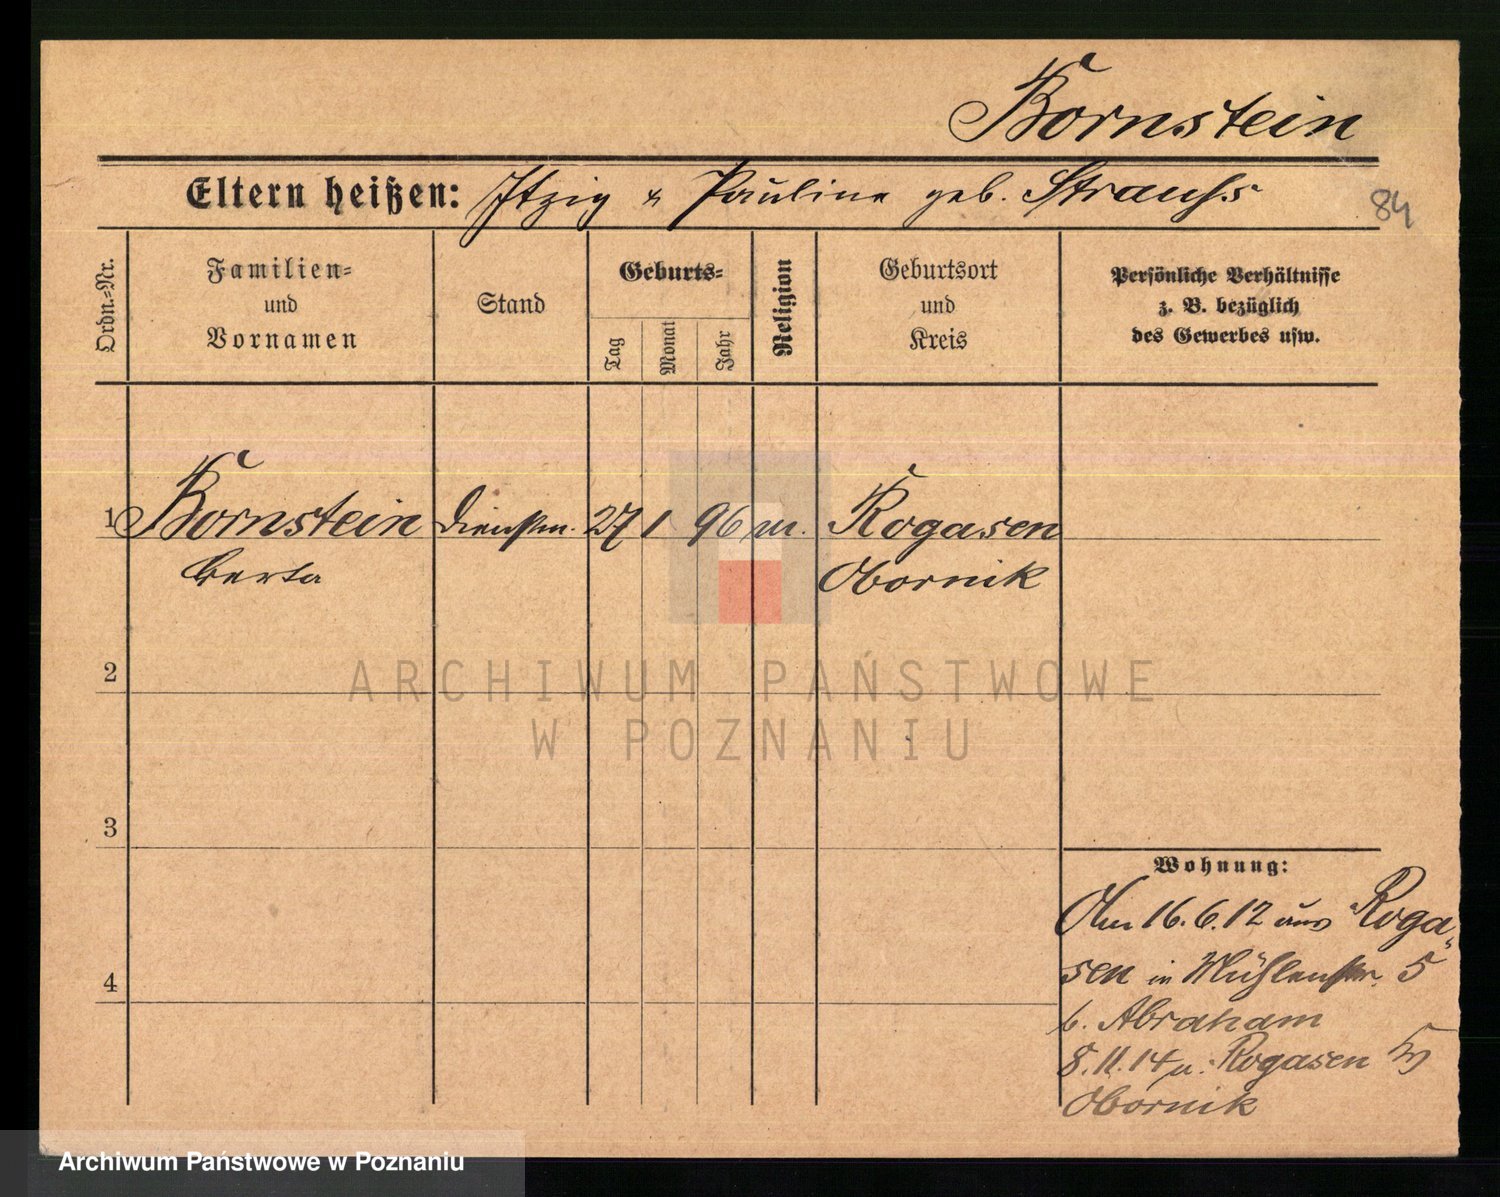 Bornstein
Eltern heißen: Itzig & Pauline geb. Strauss
84
Ordn.=Nr.
Familien=
und
Vornamen
Stand
Geburts=
Tag
Monat
Jahr
Religion
Geburtsort
und
Kreis
Persönliche Verhältnisse
z. B. bezüglich
des Gewerbes usw.
1 Bornstein Dienstm. 27 1 96 m. Rogasen
Berta Obornik
2
ARCHIWUM PAŃSTWOWE
W POZNANIU
3
4
Wohnung:
Am 16.6.12 aus Roga=
sen in Mühlenstr. 5
b. Abraham
8.11.14 n. Rogasen
Obornik
Archiwum Państwowe w Poznaniu